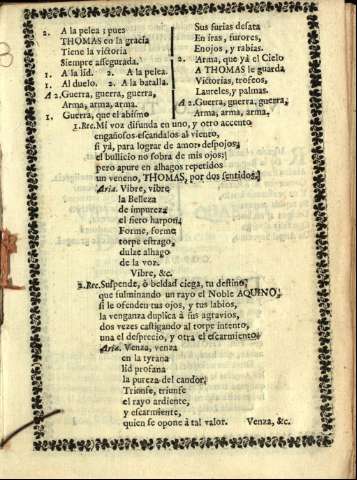 2. A la pelea; pues
THOMAS en la gracia
Tiene la victoria
Siempre assegurada.
1. A la lid. 2. A la pelea.
1. Al duelo. 2. A la batalla.
A 2. Guerra, guerra, guerra,
Arma, arma, arma.
1. Guerra, que el abismo
Sus furias desata
En iras, furores,
Enojos, y rabias.
2. Arma, que yà el Cielo
A THOMAS le guarda
Victorias, trofeos,
Laureles, y palmas.
A 2. Guerra, guerra, guerra,
Arma, arma, arma.
1. Rec. Mi voz difunda en uno, y otro accento
engañosos escandalos al viento,
si yá, para lograr de amor despojos,
el bullicio no sobra de mis ojos;
pero apure en alhagos repetidos
un veneno, THOMAS, por dos sentidos.
Aria. Vibre, vibre
la Belleza
de impureza
el fiero harpon.
Forme, forme
torpe estrago,
dulze alhago
de la voz.
Vibre, &c.
2. Rec. Suspende, ò beldad ciega, tu destino,
que fulminando un rayo el Noble AQUINO,
si le ofenden tus ojos, y tus labios,
la venganza duplica à sus agravios,
dos vezes castigando al torpe intento,
una el desprecio, y otra el escarmiento.
Aria. Venza, venza
en la tyrana
lid profana
la pureza del candor.
Triunfe, triunfe
el rayo ardiente,
y escarmiente,
quien se opone à tal valor. Venza, &c.